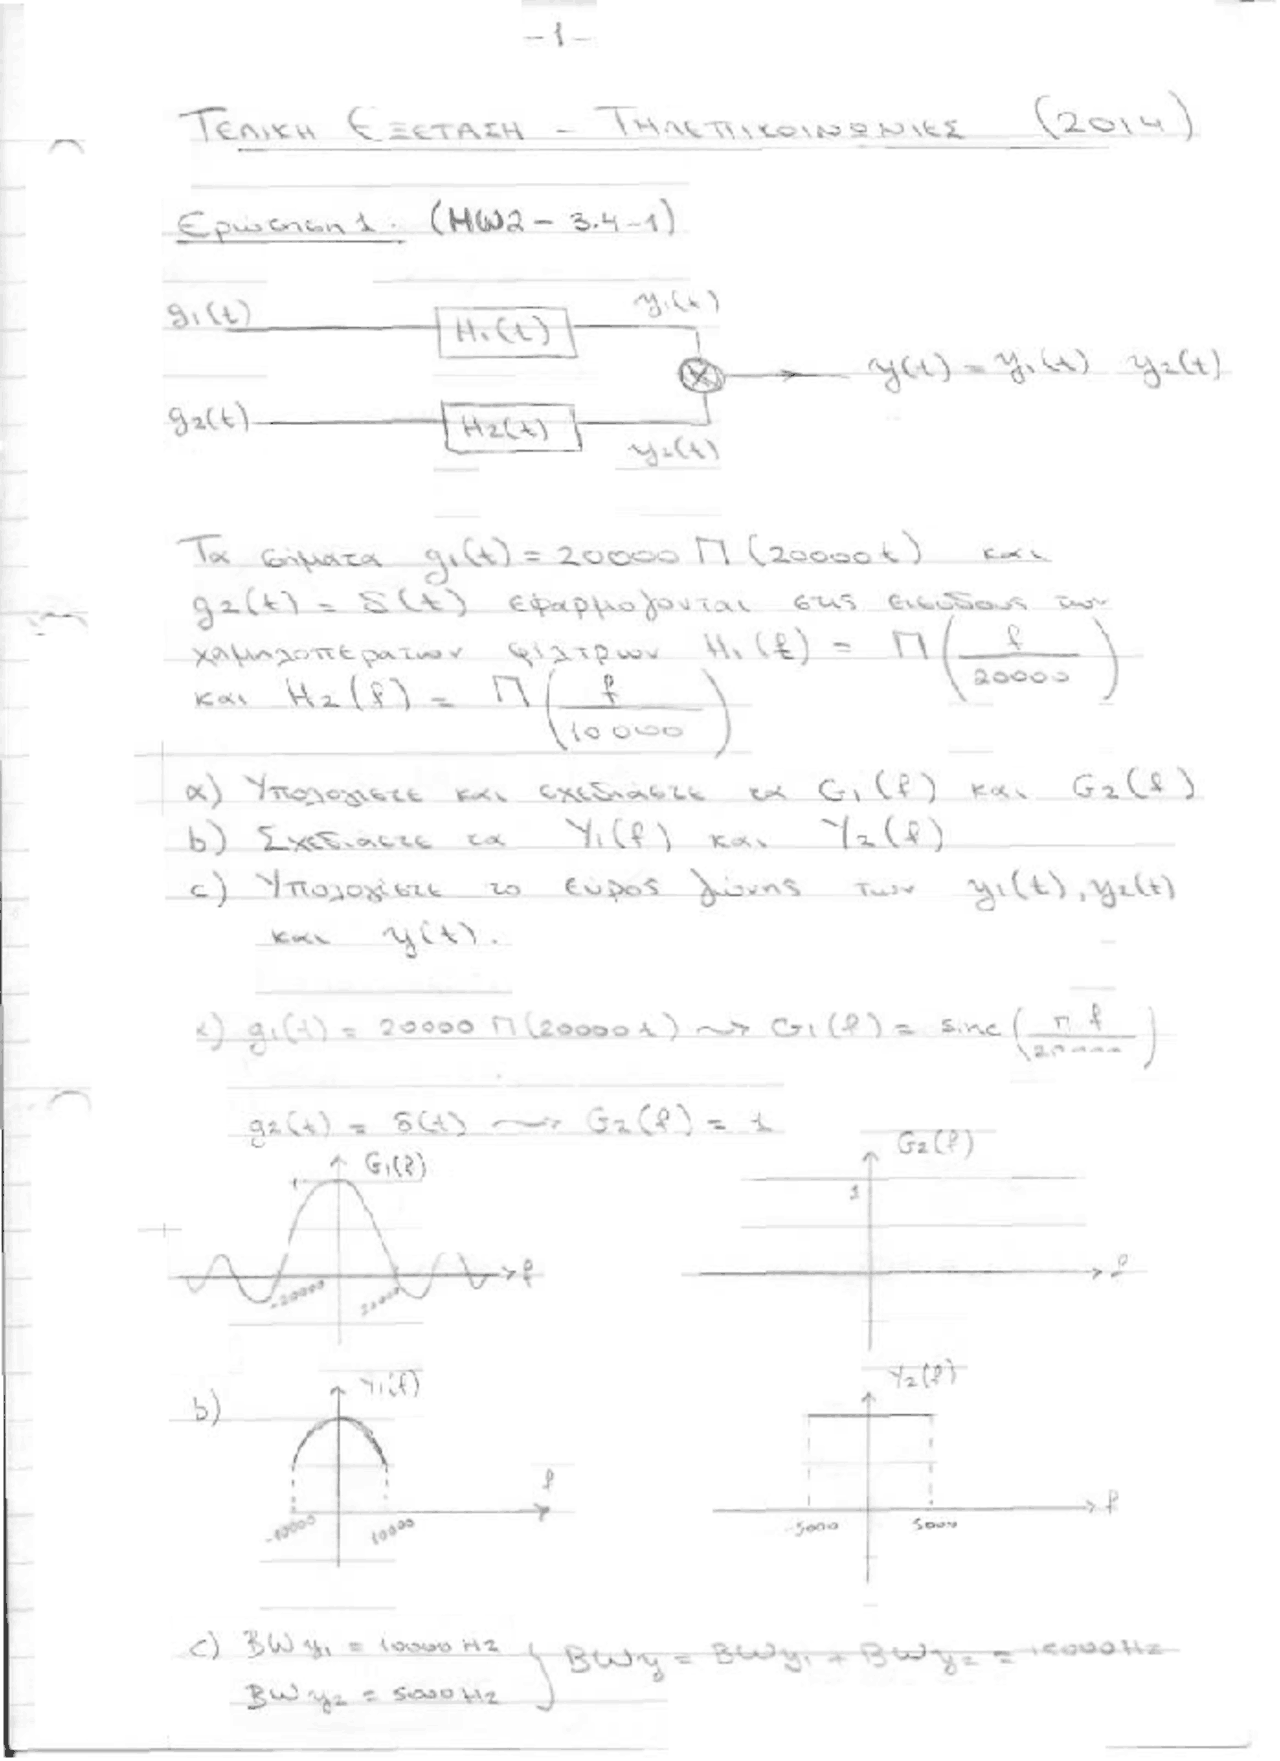 -1-
ΤΕΛΙΚΗ ΕΞΕΤΑΣΗ - ΤΗΛΕΠΙΚΟΙΝΩΝΙΕΣ (2014)
Ερώτηση 1. (HW2 - 3.4-1)
g1(t) H1(t) y1(t)
y(t) = y1(t) y2(t)
g2(t) H2(t) y2(t)
Τα σήματα g1(t) = 20000 Π (20000t) και
g2(t) = δ(t) εφαρμοζονται στις εισοδους των
χαμηλοπερατων φιλτρων H1(f) = Π(f/20000)
και H2(f) = Π(f/10000)
α) Υπολογιστε και σχεδιαστε τα G1(f) και G2(f)
b) Σχεδιαστε τα Y1(f) και Y2(f)
c) Υπολογιστε το ευρος ζωνης των y1(t), y2(t)
και y(t).
α) g1(t) = 20000 Π(20000t) ⇝ G1(f) = sinc(πf/20000)
g2(t) = δ(t) ⇝ G2(f) = 1
G1(f) G2(f)
1
f f
-20000 20000
b) Y1(f) Y2(f)
f f
-10000 10000 -5000 5000
c) BWy1 = 10000 Hz } BWy = BWy1 + BWy2 = 15000Hz
BWy2 = 5000 Hz